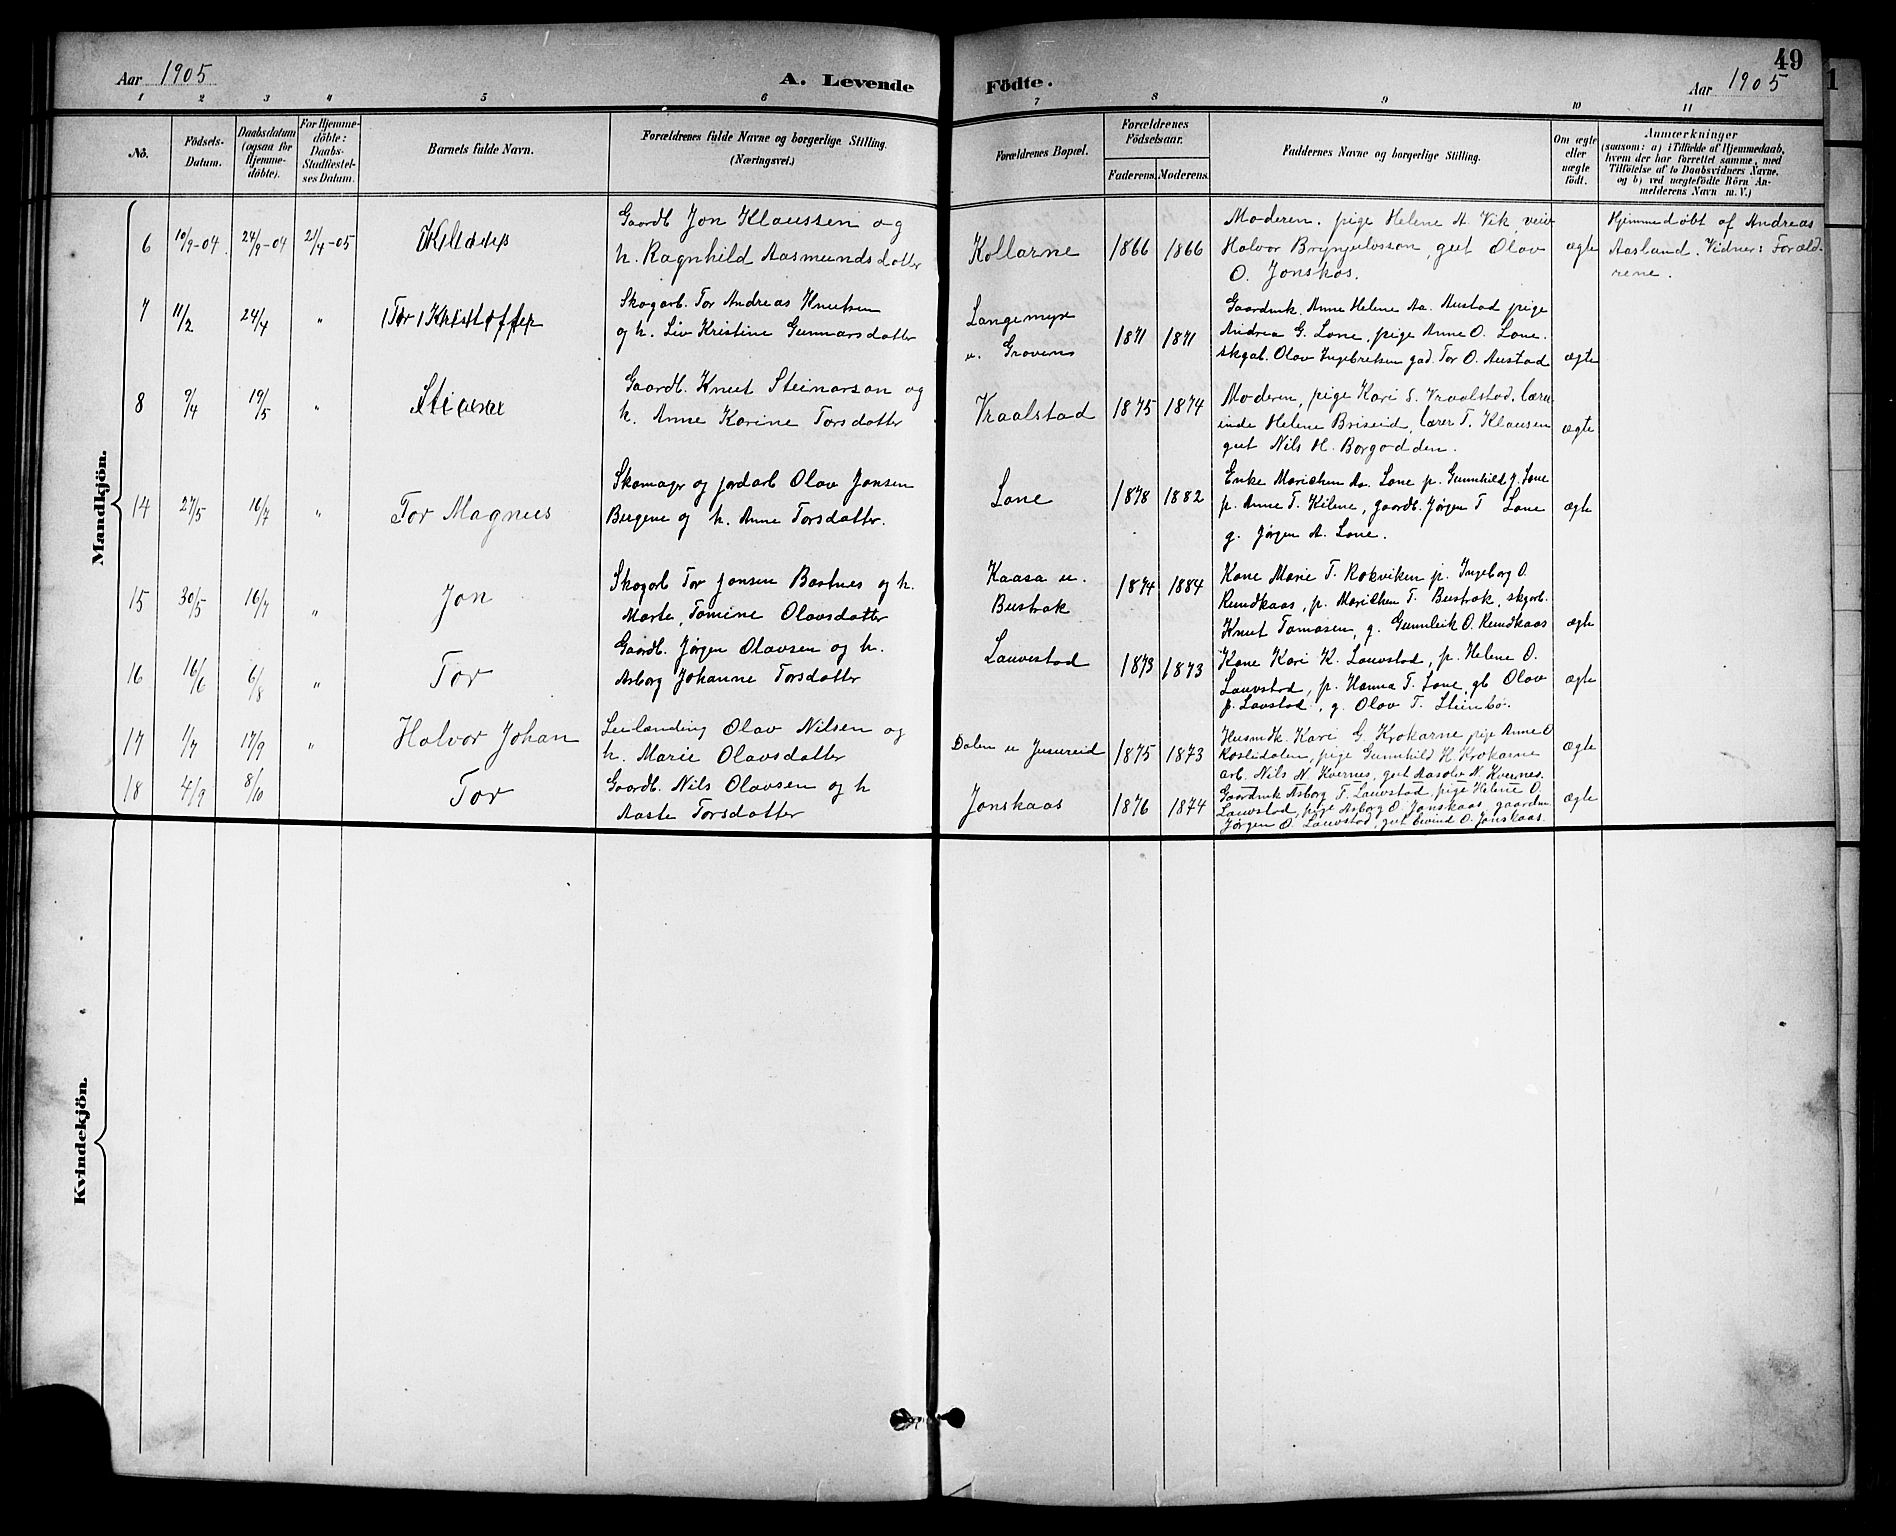 49
Aar 1905
A. Levende
Födte.
Aar 1905
1 2 3 4 5 6 7 8 9 10 11
No.
Födsels-
Datum.
Daabsdatum
(ogsaa for
Hjemme-
döbte).
For Hjemme-
döbte:
Daabs-
Stadfæstel-
ses Datum.
Barnets fulde Navn.
Forældrenes fulde Navne og borgerlige Stilling.
(Næringsvei.)
Forældrenes Bopæl.
Forældrenes
Födselsaar.
Faderens. Moderens.
Faddernes Navne og borgerlige Stilling.
Om ægte
eller
uægte
födt.
Anmærkninger
(saasom: a) i Tilfælde af Hjemmedaab,
hvem der har forrettet samme, med
Tilföielse af to Daabsvidners Navne,
og b) ved uægtefödte Börn An-
melderens Navn m. V.)
Mandkjön.
6 10/9-04 24/9-04 21/4-05
Gaardb. Jon Klaussen og
h. Ragnhild Aasmundsdatter
Kollarne 1866 1866
Moderen, pige Helene A. Vik,
Halvor Brynjulvsson, gut Olav
O. Jonskås.
ægte
Hjemmedøbt af Andreas
Aasland. Vidner: Foræld-
rene.
7 11/2 24/4 " (Tor) Kristoffer
Skogarb. Tor Andreas Knutsen
og h. Liv Kristine Gunnarsdatter
Langemyr
u. Grovens
1871 1871
Gaardmk. Anne Helene Aa. Austad pige
Andrea G. Lone, pige Anne O. Lone.
skgab. Olav Ingebretsen gad. Tor O. Austad
ægte
8 9/4 19/5 "
Gaardb. Knut Steinarson og
h. Anne Karine Torsdatter
Vraalstad 1875 1874
Moderen, pige Kari S. Vraalstad, lærer-
inde Helene Briseid, lærer T. Klausen
gut Nils H. Borgodden.
ægte
14 27/5 16/7 " Tor Magnus
Skomagr og jordarb Olav Jonsen
Bergene og h. Anne Torsdatter.
Lone 1878 1882
Enke Marichen Aa. Lone p. Gunnhild J. Lone
p. Anne T. Kilene, gaardb. Jørgen T Lone
g. Jørgen A. Lone.
ægte
15 30/5 16/7 " Jon
Skogarb Tor Jonsen Bostnes og h.
Marte Tomine Olavsdatter
Kaasa u.
Bustrak
1874 1884
Kone Marie T. Rokviken p. Ingeborg O.
Rundkaas, p. Marichen T. Bustrak, skgarb.
Knut Tomasen, g. Gunnleik O. Rundkaas
ægte
16 16/6 6/8 " Tor
Gaardb. Jørgen Olavsen og h.
Asborg Johanne Torsdatter
Lauvstad 1873 1873
Kone Kari K. Lauvstad, p. Helene O.
Lauvstad, p. Hanna T. Lone, gb Olav
p. Lavstad, g. Olav T. Steinbø.
ægte
17 1/7 17/9 " Halvor Johan
Leilænding Olav Nilsen og
h. Marie Olavsdatter
Dalen u Jusureid 1875 1873
Husmdk. Kari G. Krokarne, pige Anne O
Roslidalen, pige Gunnhild H. Krokarne
arb. Nils N. Kvernes, gut Aasolv N. Kvernes.
ægte
18 4/9 8/10 Tor
Gaardb. Nils Olavsen og h
Aaste Torsdatter
Jonskaas 1876 1874
Gaardmk Asborg T. Lauvstad, pige Helene O.
Lauvstad, pige Asborg O. Jonskaas, gaardm
Jørgen O. Lauvstad, gut Eivind O. Jonskaas.
ægte
Kvindekjön.